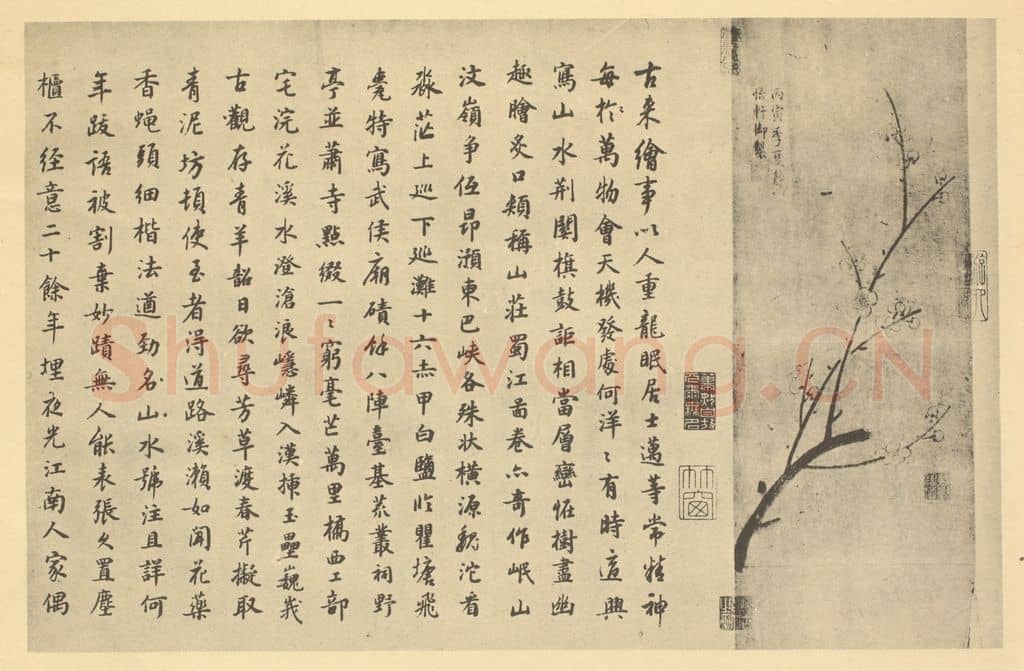 丙寅季夏静
怡軒御製
古來繪事以人重龍眠居士邁等常精神
每於萬物會天機發處何洋〻有時遣興
寫山水荊關旗鼓詎相當層巒恠樹盡幽
趣膾炙口頰稱山莊蜀江啚卷亦奇作岷山
汶嶺爭低昂瀕東巴峽各殊状橫源沱看
淼茫上巡下巡灘十六赤甲白鹽臨瞿塘飛
甍特寫武侯廟磧餘八陣臺基荒叢祠野
亭並蕭寺點綴一〻窮毫芒萬里橋西工部
宅浣花溪水澄滄浪嶙入漢揀玉壘巍峩
古觀存青羊韶日欲尋芳草渡春芹擬取
青泥坊頓使玉者淂道路溪瀨如聞花藥
香蠅頭細楷法遒勁名山水號注且詳何
年跋語被割棄妙蹟無人能表張久置塵
櫃不經意二十餘年埋夜光江南人家偶
竹窗
Shufawang.CN